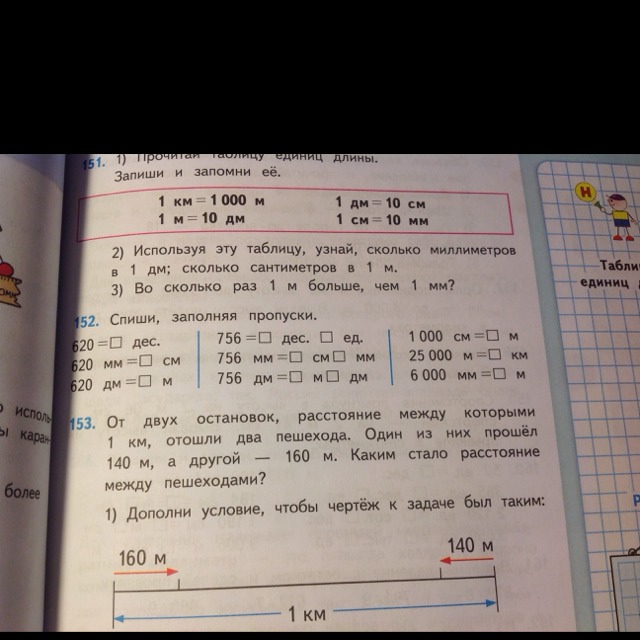 151. 1) Прочитай таблицу единиц длины.
Запиши и запомни её.
1 км = 1 000 м 1 дм = 10 см
1 м = 10 дм 1 см = 10 мм
2) Используя эту таблицу, узнай, сколько миллиметров
в 1 дм; сколько сантиметров в 1 м.
3) Во сколько раз 1 м больше, чем 1 мм?
152. Спиши, заполняя пропуски.
620 = □ дес. 756 = □ дес. □ ед. 1 000 см = □ м
620 мм = □ см 756 мм = □ см □ мм 25 000 м = □ км
620 дм = □ м 756 дм = □ м □ дм 6 000 мм = □ м
153. От двух остановок, расстояние между которыми
1 км, отошли два пешехода. Один из них прошёл
140 м, а другой — 160 м. Каким стало расстояние
между пешеходами?
1) Дополни условие, чтобы чертёж к задаче был таким:
160 м 140 м
1 км
более
Н
единиц